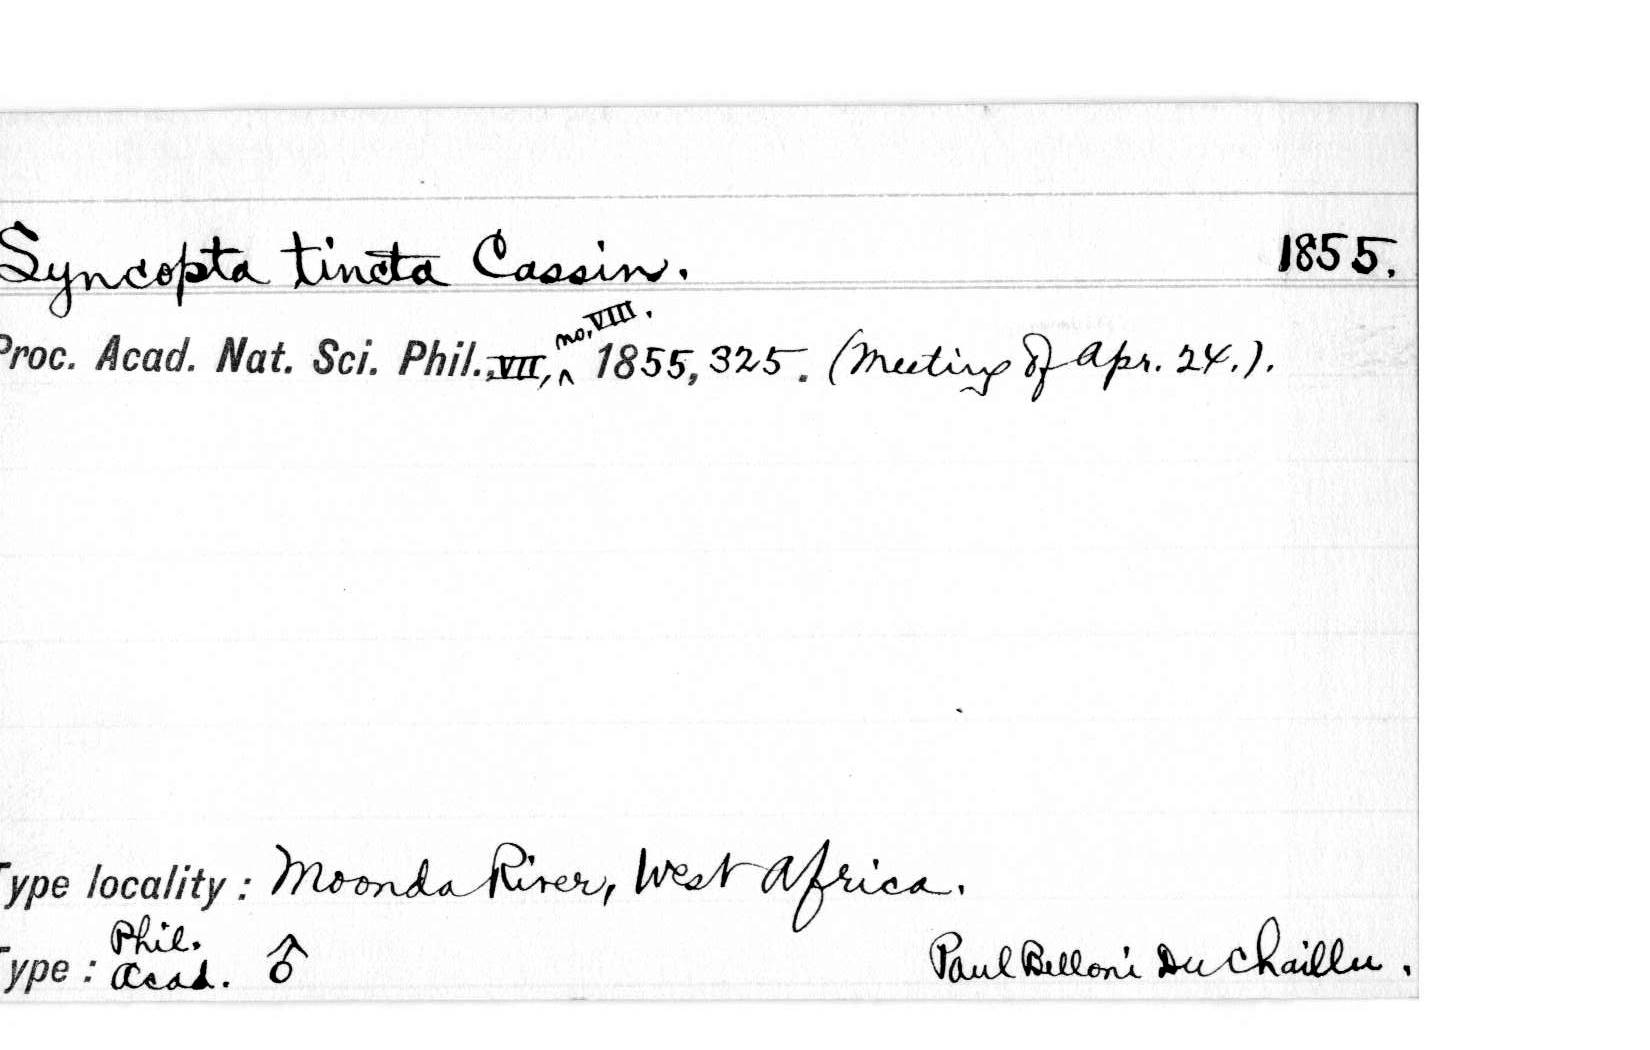 Syncopta tincta Cassin. 1855.
Proc. Acad. Nat. Sci. Phil., VII, no. VIII. 1855, 325. (Meeting of Apr. 24.).
Type locality: Moonda River, West Africa.
Type: Phil. Acad. ♂ Paul Belloni Du Chaillu.